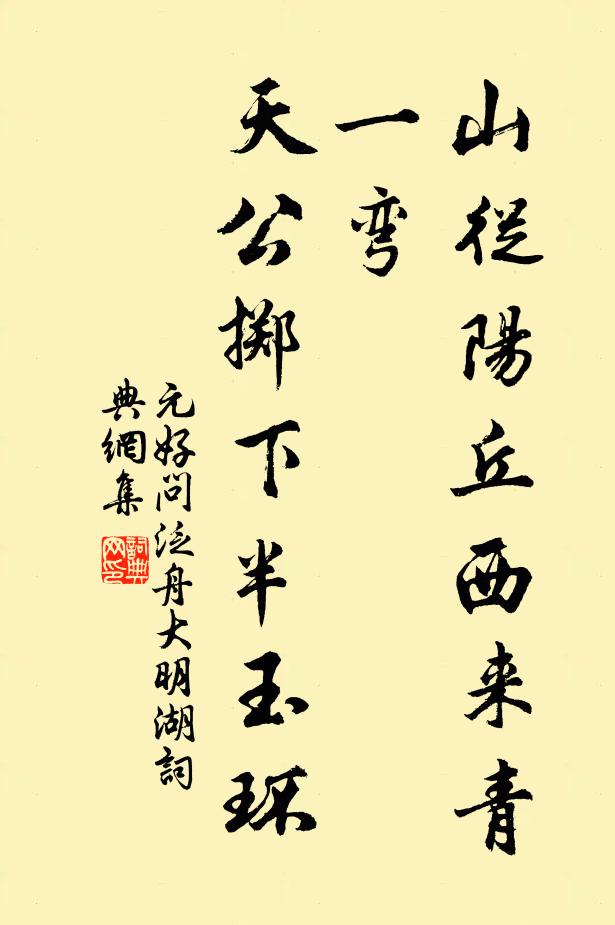 山從陽丘西来青
一弯
天公掷下半玉环
元好问泛舟大明湖詞
典網集
詞典
网印